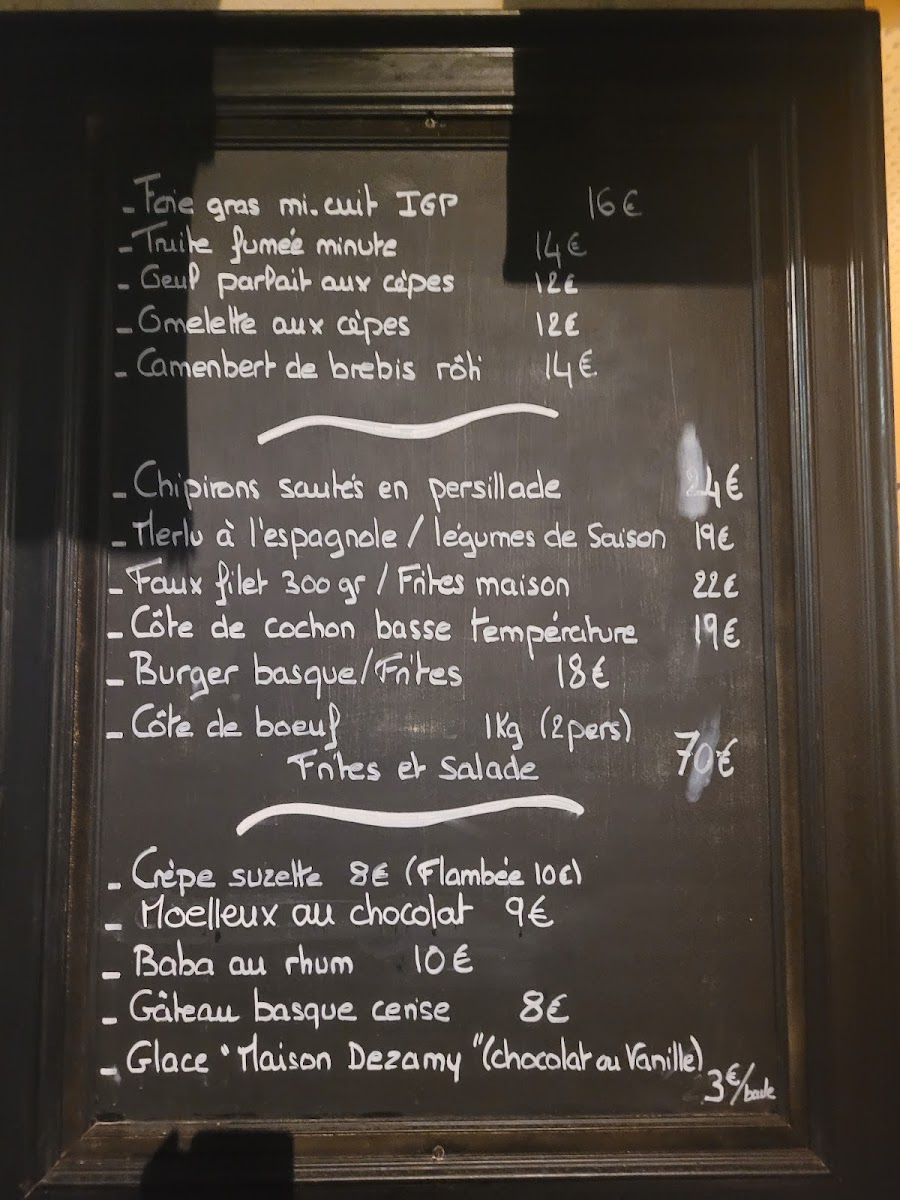 - Foie gras mi.cuit IGP 16€
- Truite fumée minute 14€
- Oeuf parfait aux cèpes 12€
- Omelette aux cèpes 12€
- Camenbert de brebis rôti 14€
- Chipirons sautés en persillade 24€
- Merlu à l'espagnole / légumes de Saison 19€
- Faux filet 300 gr / Frites maison 22€
- Côte de cochon basse température 19€
- Burger basque/Frites 18€
- Côte de boeuf 1Kg (2pers)
Frites et Salade 70€
- Crêpe suzette 8€ (Flambée 10€)
- Moelleux au chocolat 9€
- Baba au rhum 10€
- Gâteau basque cerise 8€
- Glace "Maison Dezamy" (chocolat ou Vanille)
3€/boule